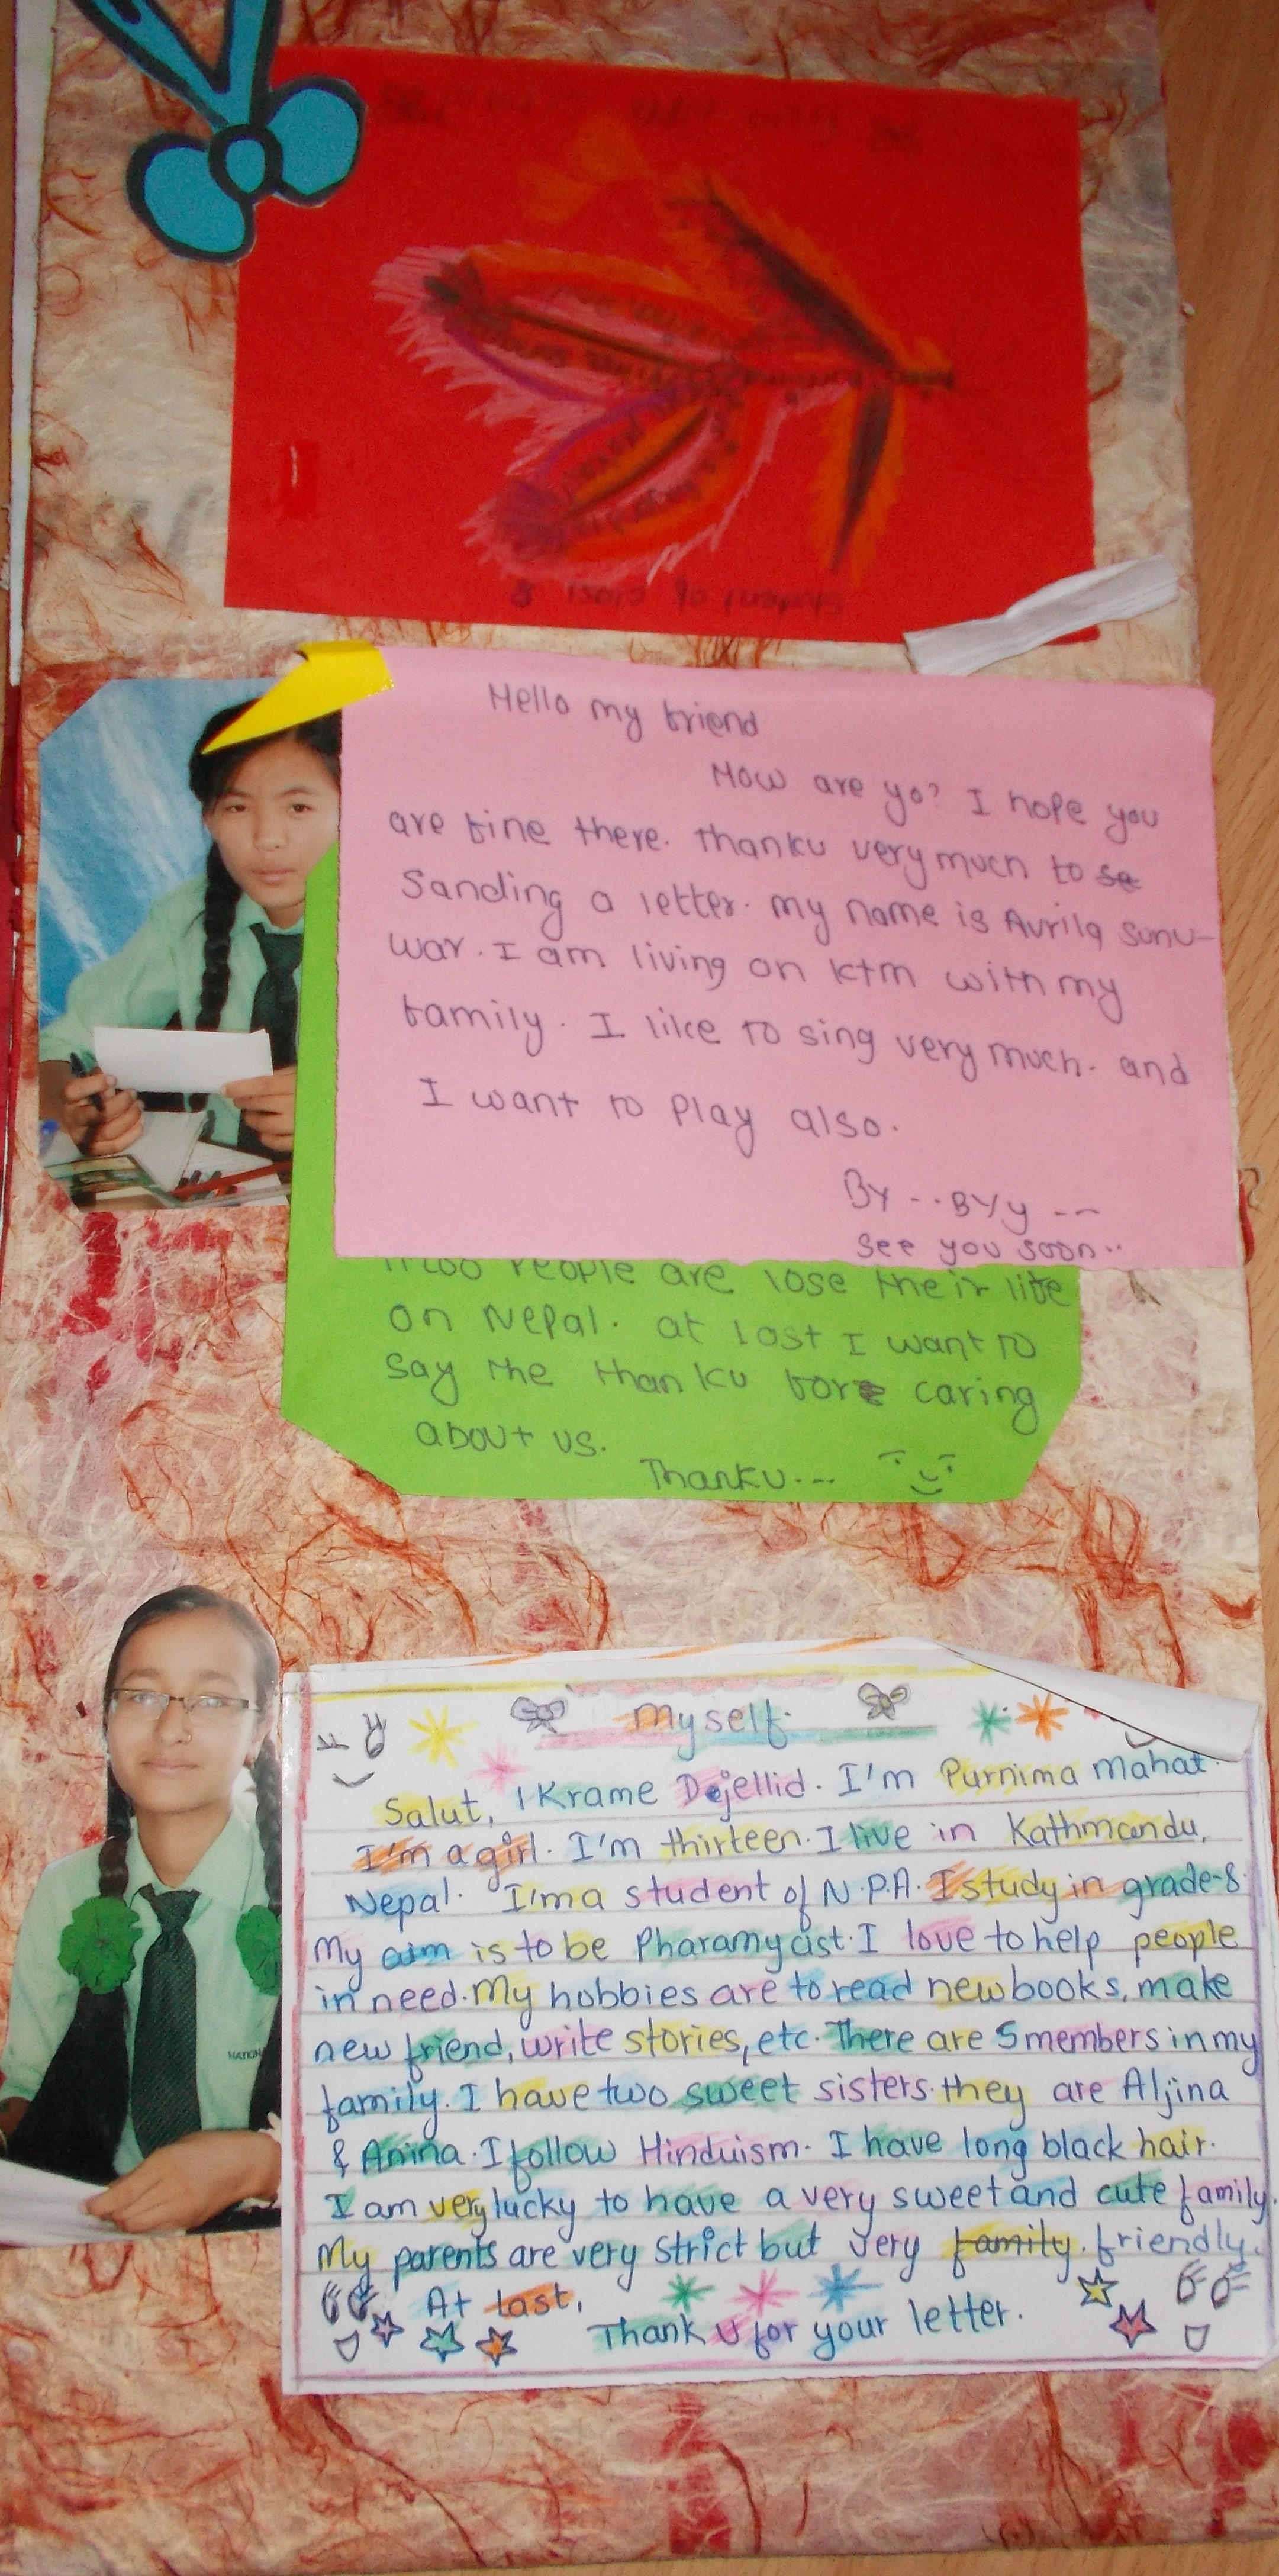 Student of class 8
Hello my friend
How are yo? I hope you
are fine there. thanku very much to se
Sanding a letter. my name is Avrila sunu-
war. I am living on ktm with my
family. I like to sing very much. and
I want to play also.
By --BYy --
see you soon..
People are lose their life
on Nepal. at last I want to
say the thanku fore caring
about us.
Thanku---
Myself.
Salut, Ikrame Dejellid. I'm Purnima Mahat.
I'm a girl. I'm thirteen. I live in Kathmandu,
Nepal. I'm a student of N.P.A. I study in grade-8.
My aim is to be Pharamycist. I love to help people
in need. My hobbies are to read new books, make
new friend, write stories, etc. There are 5 members in my
family. I have two sweet sisters. they are Aljina
& Amina. I follow Hinduism. I have long black hair.
I am very lucky to have a very sweet and cute family.
My parents are very strict but very family. friendly.
At last,
Thank u for your letter.
NATION